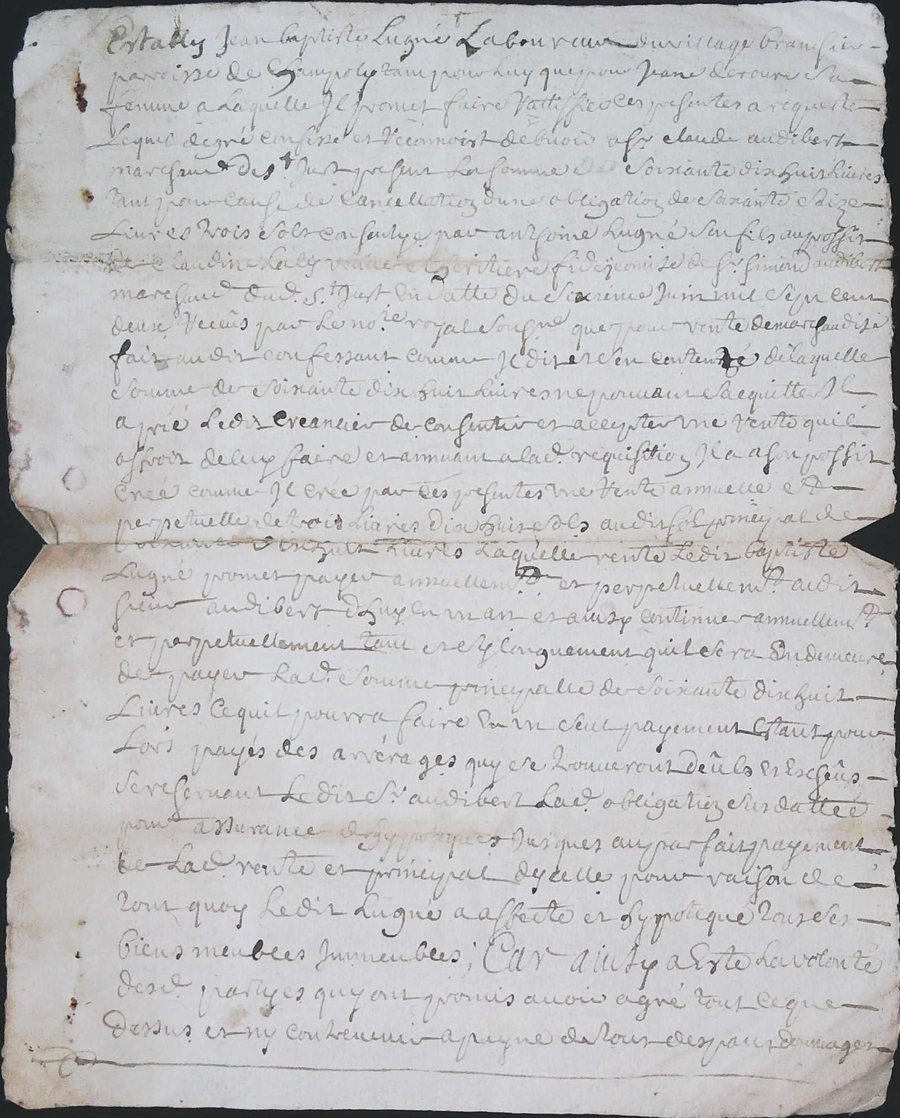 Estably Jean baptiste Lugné Laboureur du village
parroisse de Champoly tam pour luy que pour Jane decoure sa
femme a Laquelle Il promet faire Rattiffier ces presentes a requeste
Lequel de gré confesse et Reconnoist debvoir a Sr claude audibert
marchand de St Just present La somme de Soixante dix huit Livres
tant pour cause de Cancellation dune obligation de Soixante Seize
Livres trois Sols consentye par anthoine Lugné Son fils au proffit
de Claudine Laly veufve et heritiere fideicomise de Sr Simond audibert
marchand dud. St Just En datte du Sixieme Juin mil Sept Cent
deux Receus par le nore royal Soubsne que pour vente de marchandise
fait audit confessant comme Il dit et Sen contente de laquelle
Somme de Soixante dix huit Livres ne pouvant Sacquitter Il
a prié Ledit Creancier de consentir et accepter une Rente quil
offroit de luy faire et annuant a lad. requisition Il a a son proffit
Creé comme Il Crée par Ces presentes une Rente annuelle et
perpetuelle de trois Livres dix huit Sols audit Sol principal de
Soixante dix huit Livres Laquelle rente Ledit baptiste
Lugné promet payer annuellemt et perpetuellemt audit
Sieur audibert dhuy En un an et ainsy continuer annuellemt
et perpetuellement tant et Sy longuement quil Sera En demeure
de payer Lad. Somme principalle de Soixante dix huit
Livres Ce quil pourra faire En un Seul payement Estant pour
Lors payés des arrérages quy Se trouveront deûbs Et Escheûs
Se reservant Ledit Sr audibert Lad. obligation Sus dattée
pour assurance d'hyppoteques Jusques au parfait payement
de Lad. rente et principal dycelle pour raison de
tout quoy Ledit Lugné a affecté et hyppotequé tous Ses
biens meubles Immeubles; Car ainsy a Esté La volonté
desd. partyes quy ont promis avoir agré tout Ce que
dessus et ny contrevenir a payne de tous despans dommages